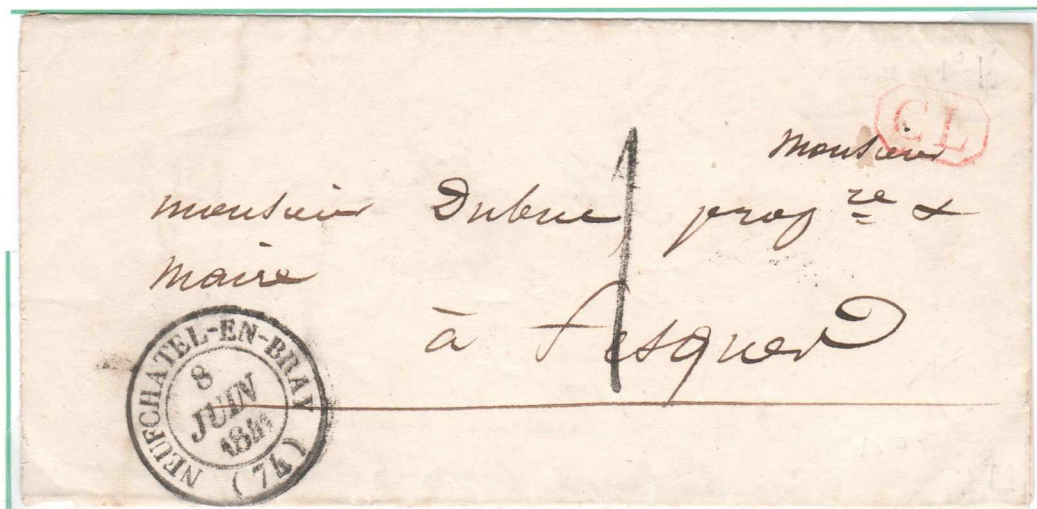 CL
Monsieur
monsieur Dubuc prop re &
maire
1
à fesques
NEUFCHATEL-EN-BRAY
8
JUIN
1841
(74)